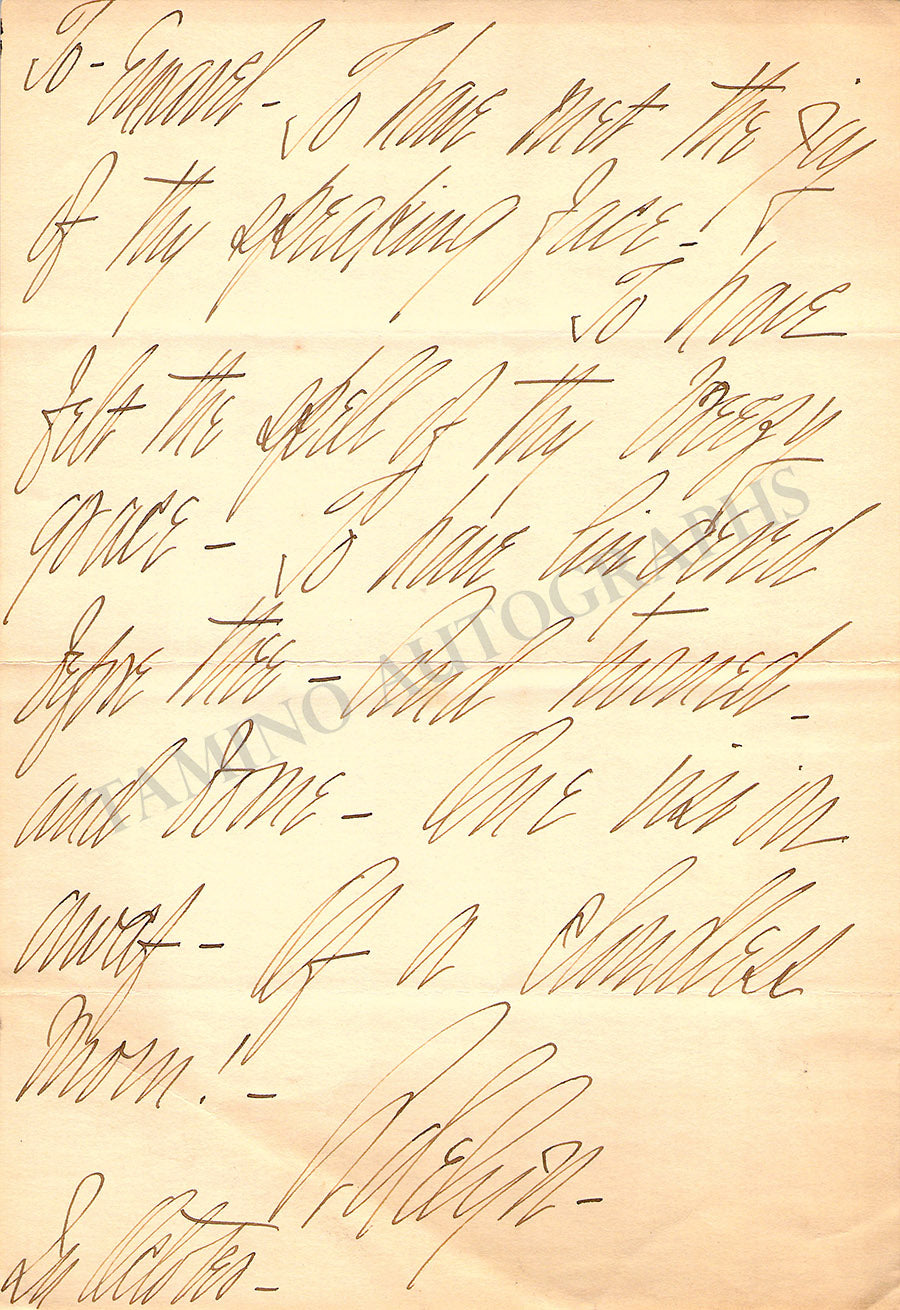 To - - To have met the joy
of thy speaking face -
To have
felt the spell of thy breezy
grace - To have lingered
before thee - And turned -
and borne - One vision
away - Of a cloudless
morn! -
In October -
TAMINO AUTOGRAPHS